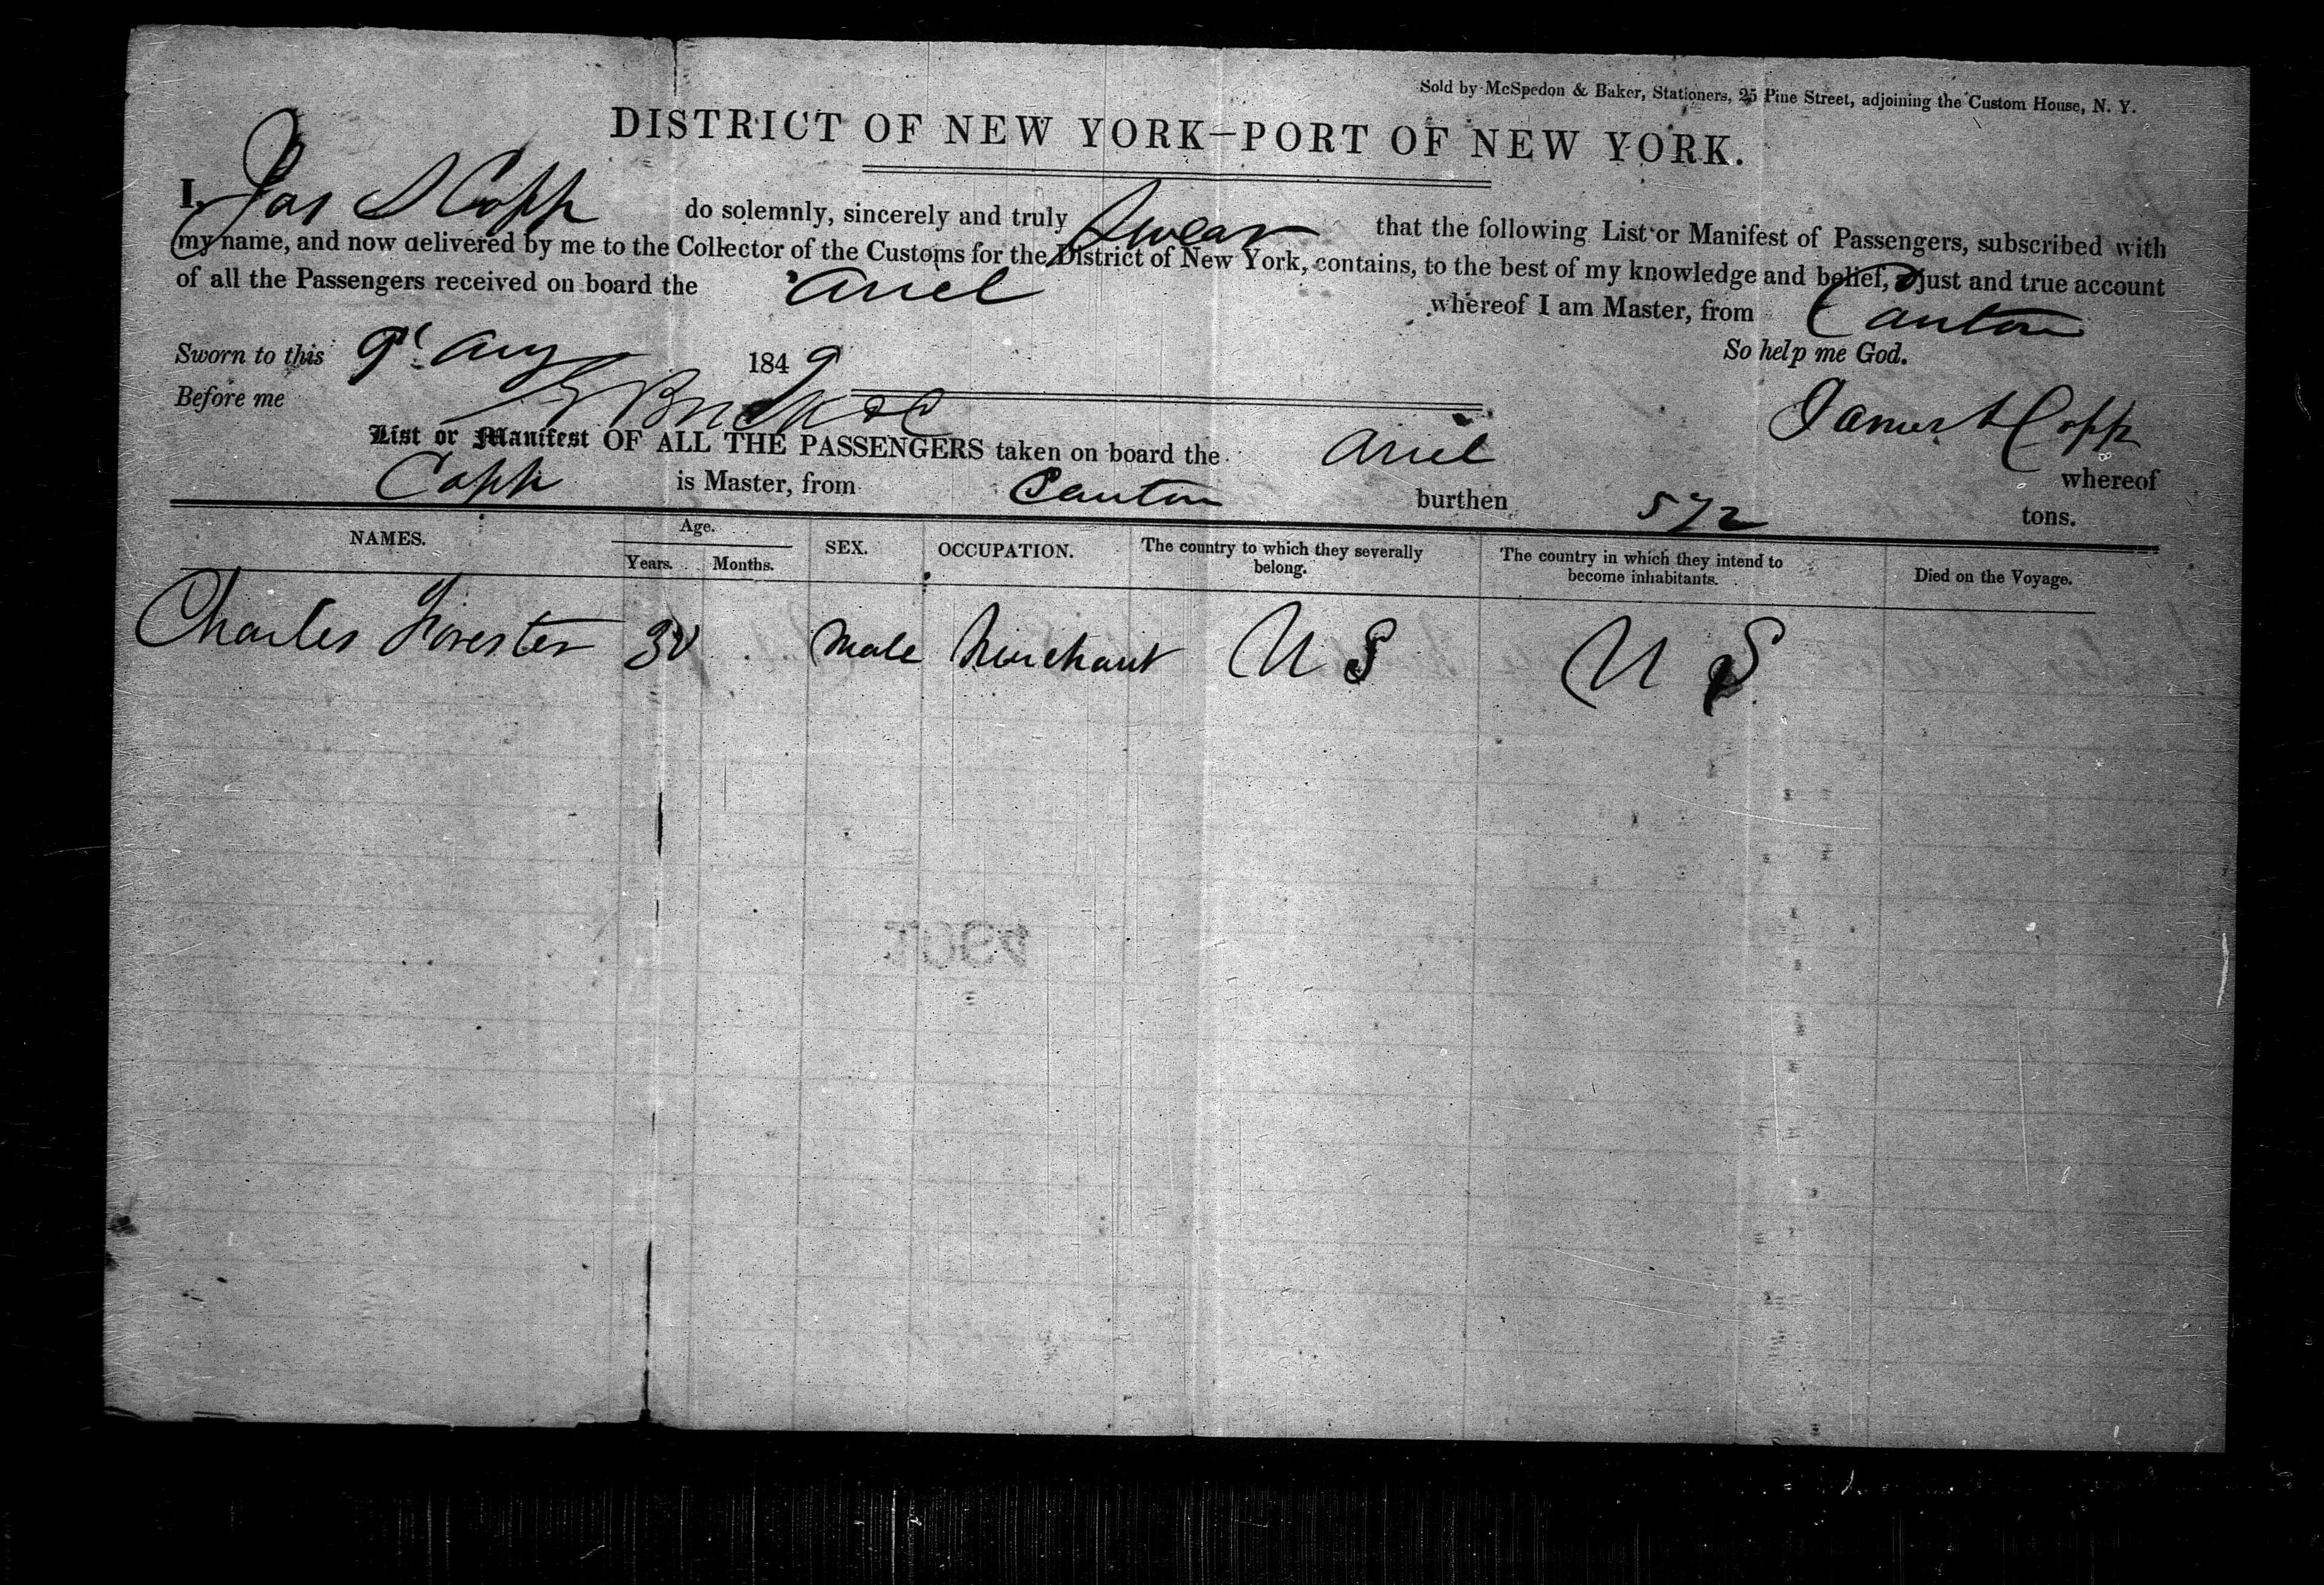 Sold by McSpedon & Baker, Stationers, 25 Pine Street, adjoining the Custom House, N. Y.
DISTRICT OF NEW YORK—PORT OF NEW YORK.
I, Jas S Copp do solemnly, sincerely and truly swear that the following List or Manifest of Passengers, subscribed with
my name, and now delivered by me to the Collector of the Customs for the District of New York, contains, to the best of my knowledge and belief, a just and true account
of all the Passengers received on board the Ariel whereof I am Master, from Canton
Sworn to this 9t Aug 1849 So help me God.
Before me
James S Copp
List or Manifest OF ALL THE PASSENGERS taken on board the Ariel whereof
Copp is Master, from Canton burthen 572 tons.
NAMES. Age. SEX. OCCUPATION. The country to which they severally belong. The country in which they intend to become inhabitants. Died on the Voyage.
Years. Months.
Charles Forester 30 Male Merchant U S U S